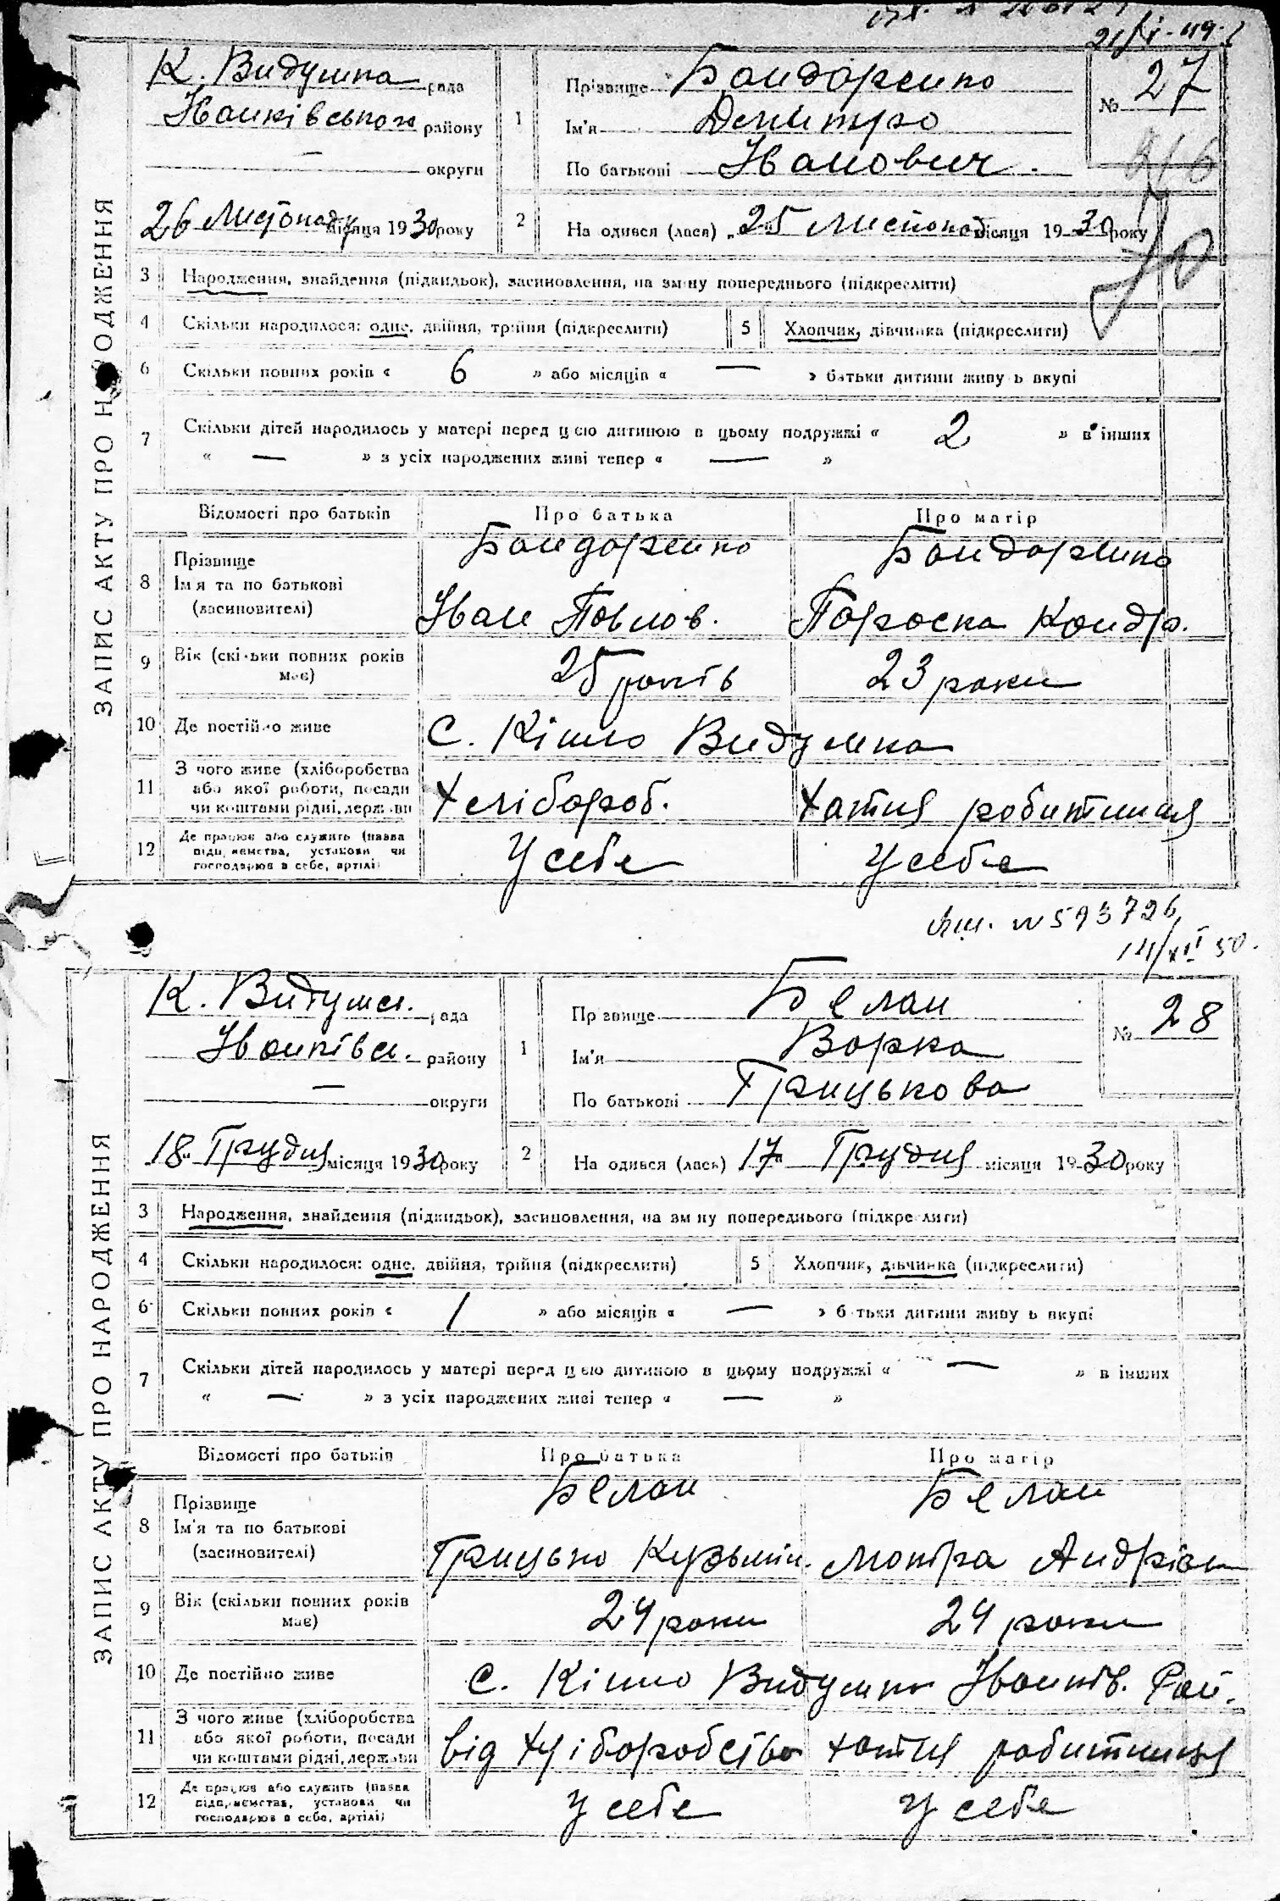 21/I-49.
ЗАПИС АКТУ ПРО НАРОДЖЕННЯ
К. Видумка рада
Іванківського району
— округи
26 Листопаду місяця 1930 року
1
Прізвище Бондаренко
Ім'я Демитро
По батькові Іванович.
№ 27
2 На одився (лася) „25 Листопад місяця 1930 року
3 Народження, знайдення (підкидьок), засиновлення, на зміну попереднього (підкреслити)
4 Скільки народилося: одне, двійня, трійня (підкреслити) 5 Хлопчик, дівчинка (підкреслити)
6 Скільки повних років « 6 » або місяців « — » батьки дитини живу ь вкупі
7 Скільки дітей народилось у матері перед цією дитиною в цьому подружжі « 2 » в інших
« — » з усіх народжених живі тепер « — »
Відомості про батьків Про батька Про матір
8 Прізвище Бондаренко Бондаренко
Ім'я та по батькові
(засиновителі) Іван Павлов. Параска Кондр.
9 Вік (скільки повних років має) 25 років 23 роки
10 Де постійно живе С. Кішло Видумка
11 З чого живе (хліборобства
або якої роботи, посади
чи коштами рідні, держави Хлібороб. Хатня робитниця
12 Де працює або служить (назва
підприємства, установи чи
господарює в себе, артілі) У себе У себе
№ 593726
14/XII 50.
ЗАПИС АКТУ ПРО НАРОДЖЕННЯ
К. Видумсь. рада
Іванківсь. району
— округи
18 Грудня місяця 1930 року
1
Прізвище Белан
Ім'я Варка
По батькові Грицькова
№ 28
2 На одився (лась) 17 Грудня місяця 1930 року
3 Народження, знайдення (підкидьок), засиновлення, на зміну попереднього (підкреслити)
4 Скільки народилося: одне, двійня, трійня (підкреслити) 5 Хлопчик, дівчинка (підкреслити)
6 Скільки повних років « 1 » або місяців « — » батьки дитини живу ь вкупі
7 Скільки дітей народилось у матері перед цією дитиною в цьому подружжі « — » в інших
« — » з усіх народжених живі тепер « — »
Відомості про батьків Про батька Про матір
8 Прізвище Белан Белан
Ім'я та по батькові
(засиновителі) Грицько Кузьмін. Мотра Андрієв
9 Вік (скільки повних років має) 24 роки 24 роки
10 Де постійно живе С. Кішло Видумка Іванків. Рай.
11 З чого живе (хліборобства
або якої роботи, посади
чи коштами рідні, держави від хліборобства хатня робитниця
12 Де працює або служить (назва
підприємства, установи чи
господарює в себе, артілі) У себе У себе